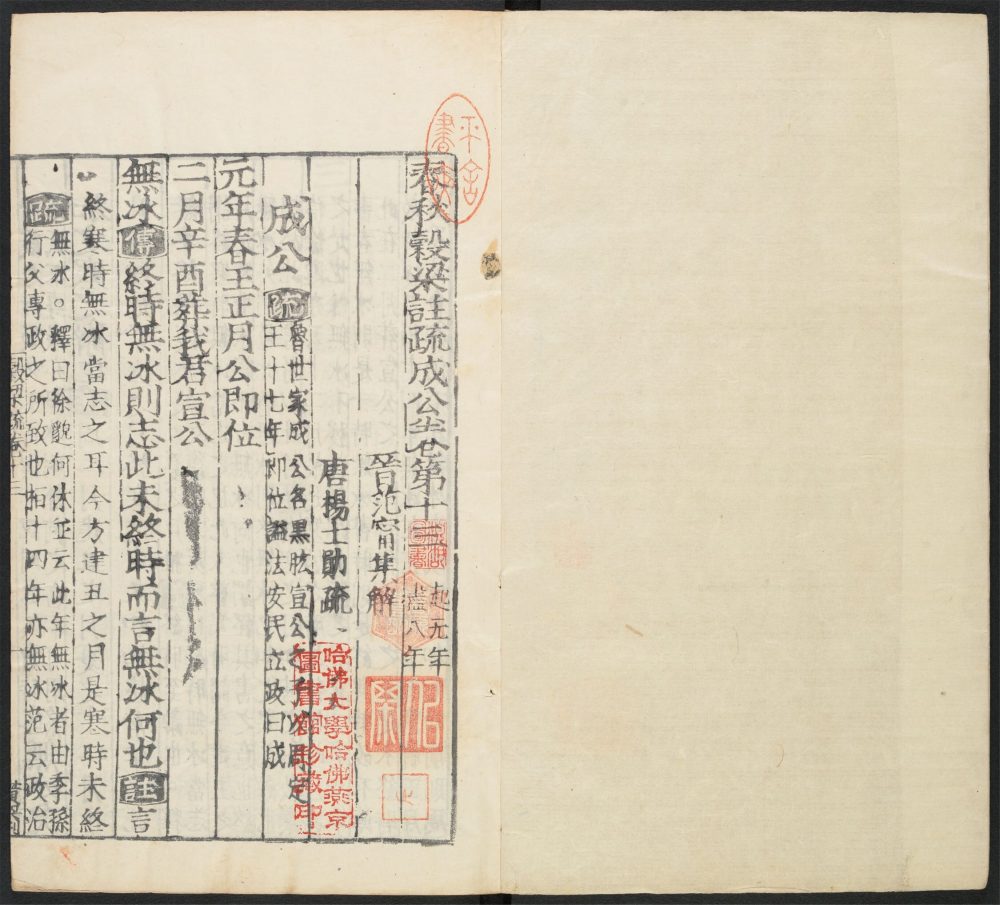 春秋穀梁註疏成公卷第十三 起元年 盡八年
晉范甯集解
唐楊士勛疏
成公 疏 魯世家成公名黑肱宣公之子以周定
王十七年即位謚法安民立政曰成
元年春王正月公即位
二月辛酉葬我君宣公
無冰傳終時無冰則志此未終時而言無冰何也註言
終寒時無冰當志之耳今方建丑之月是寒時未終
疏 無冰○釋曰徐邈何休並云此年無冰者由季孫
行父專政之所致也桓十四年亦無冰范云政治
穀梁疏卷十三
一
平舍
哈佛大學哈佛燕京
圖書館珍藏印